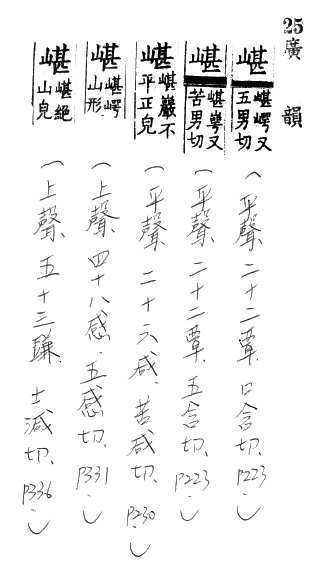 25 廣韻
嵁 嵁崿又五男切 (平聲、二十二覃、口含切、P223。)
嵁 嵁崿又苦男切 (平聲、二十二覃、五含切、P223。)
嵁 嵁巖不平正皃 (平聲、二十六咸、苦咸切、P230。)
嵁 嵁崿山形 (上聲、四十八感、五感切、P331。)
嵁 嵁絕山皃 (上聲、五十三豏、士減切、P336。)